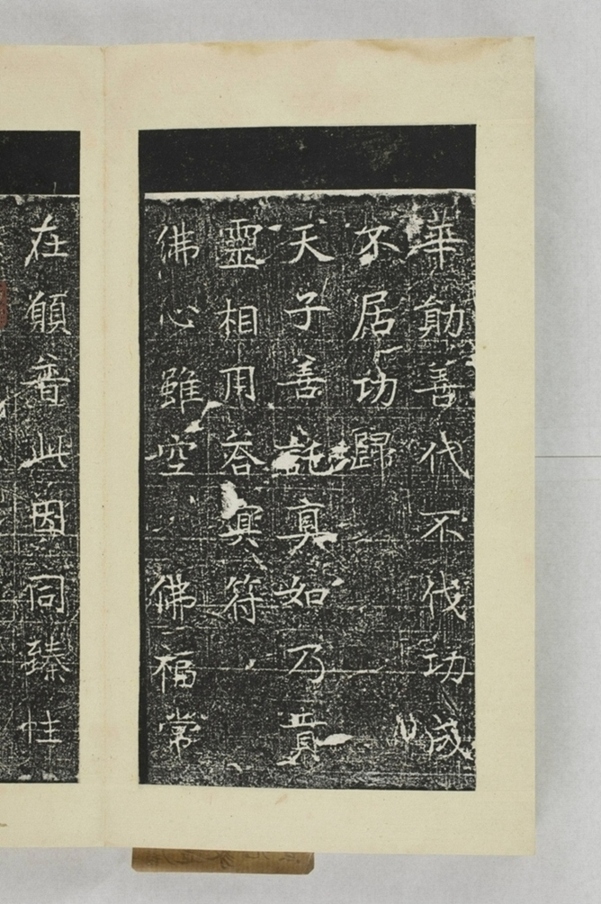 華勛善代不伐功成
不居功歸
天子善託真如乃貢
靈相用答冥符
佛心雖空佛福常
在願普此因同臻性